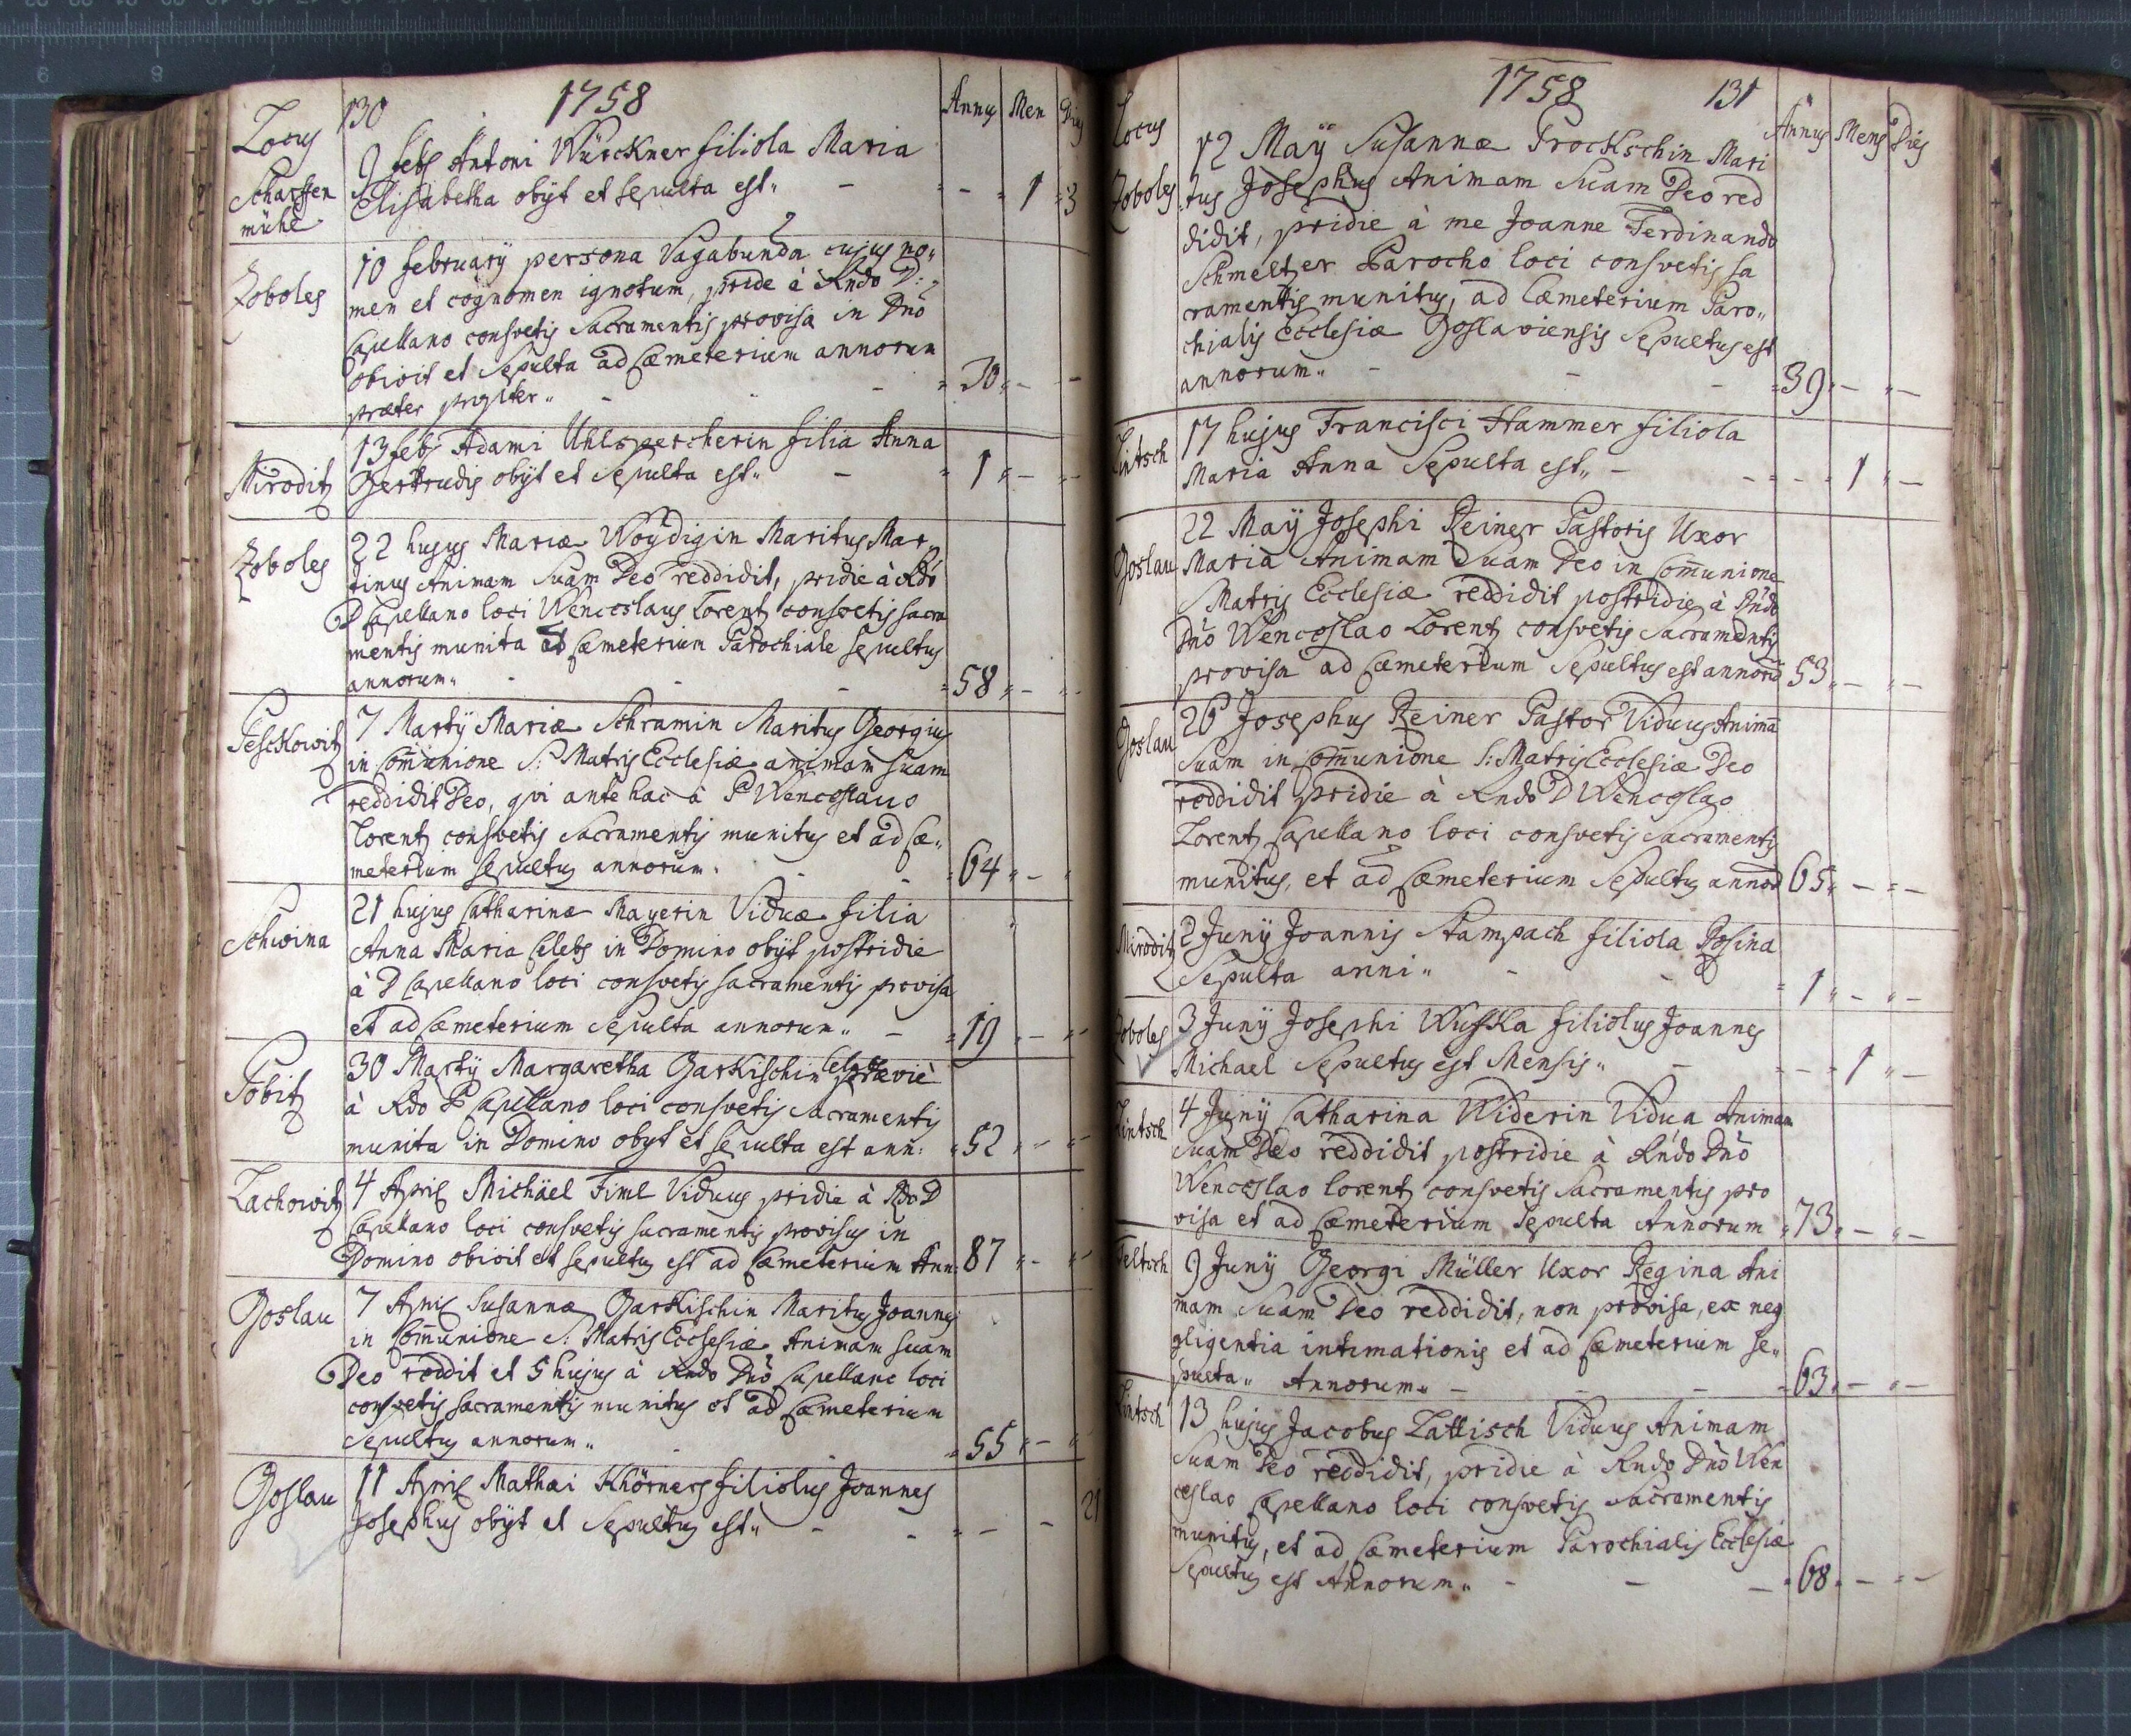 130
1758
Locus
Annus Men Dies
Scharffen
mühl
9 feb Antoni Würckner filiola Maria
Elisabetha obijt et sepulta est „ - - - 1 = 3
Zoboles
10 februarÿ persona Vagabunda cujus no„
men et cognomen ignotum, pridie à Rndo D:
Capellano consvetis Sacramentis provisa in Dno
obivit et Sepulta ad Cæmeterium annorum
præter propter „ = 30 „ - -
Miroditz
13 feb: Adami Uhlspercherin filia Anna
Gertrudis obijt et Sepulta est „ - 1 „ - -
Zoboles
22 hujus Mariæ Woÿdigin Maritus Mar„
tinus Animam Suam Deo reddidit, pridie à Rdo
D Capellano loci Wenceslaus Lorentz consvetis sacra
mentis munita ad Cæmeterium Parochiale sepultus
annorum „ - - = 58 „ - -
Pesckowitz
7 Martÿ Mariæ Schramin Maritus Georgius
in Com̄unione S: Matris Ecclesiæ animam Suam
reddidit Deo, qvi ante hac à P Wenceslauo
Lorentz consvetis Sacramentis munitus et ad Cæ„
meterium sepultus annorum. - 64 „ -
Schwina
21 hujus Catharinæ Mayerin Viduæ filia
Anna Maria Celebs in Domino obijt postridie
à D Capellano loci consvetis sacramentis provisa
et ad Cæmeterium Sepulta annorum „ - = 19 - -
Pobitz
30 Martÿ Margaretha Garkischin Celebs prævie
à Rdo P Capellano loci consvetis Sacramentis
munita in Domino obijt et sepulta est ann: = 52 „ - -
Lachowitz
4 April Michäel Fiml Viduus pridie à Rdo D
Capellano loci consvetis sacramentis provisus in
Domino obivit et sepultus est ad Cæmeterium Ann: 87 „ - -
Goslau
7 April Susannæ Garkischin Maritus Joannes
in Com̄unione S: Matris Ecclesiæ Animam suam
Deo reddit et 5 hujus à Rndo Dno Capellano loci
consvetis sacramentis munitus et ad Cæmeterium
Sepultus annorum „ = 55 „ - -
Goslau
11 April Mathæi Khörners filiolus Joannes
Josephus obijt et Sepultus est „ - - - 21
1758
131
Locus
Annus Mens Dies
Zoboles
12 Maÿ Susannæ Prockschin Mari
tus Josephus Animam Suam Deo red
didit, pridie à me Joanne Ferdinando
Schmeltzer Parocho loci consvetis sa
cramentis munitus, ad Cæmeterium Paro„
chialis Ecclesiæ Goslaviensis Sepultus est
annorum „ - - - = 39 „ - „ -
Lintsch
17 hujus Francisci Hammer filiola
Maria Anna Sepulta est „ - - - - 1 „ -
Goslau
22 Maÿ Josephi Reiner Pastoris Uxor
Maria Animam Suam Deo in Com̄unione
Matris Ecclesiæ reddidit postridie à Rndo
Dno Wenceslao Lorentz consvetis Sacramentis
provisa ad Cæmeterium Sepultus est annorū 53 „ - „ -
Goslau
26 Josephus Reiner Pastor Viduus Animā
Suam in Com̄unione S: Matris Ecclesiæ Deo
reddidit pridie à Rndo D Wenceslao
Lorentz Capellano loci consvetis Sacramentis
munitus, et ad Cæmeterium Sepultus annorū 65 „ - - -
Miroditz
2 Junÿ Joannis Stampach filiola Rosina
Sepulta anni „ - - = 1 „ - „ -
Zoboles
3 Junÿ Josephi Wuska filiolus Joannes
Michael Sepultus est Mensis „ - - - - 1 „ -
Lintsch
4 Junÿ Catharina Widerin Vidua Animam
Suam Deo reddidit postridie à Rndo Dno
Wenceslao Lorentz consvetis Sacramentis pro
visa et ad Cæmeterium Sepulta Annorum „ 73 „ - „ -
Teltsch
9 Junÿ Georgi Müller Uxor Regina Ani
mam Suam Deo reddidit, non provisa, ex neg
gligentia intimationis et ad Cæmeterium se„
pulta „ Annorum „ - - - = 63 „ - „ -
Lintsch
13 hujus Jacobus Lattisch Viduus Animam
Suam Deo reddidit, pridie à Rndo Dno Wen
ceslao Capellano loci consvetis Sacramentis
munitus, et ad Cæmeterium Parochialis Ecclesiæ
Sepultus est Annorum „ - - - 68 „ - - -